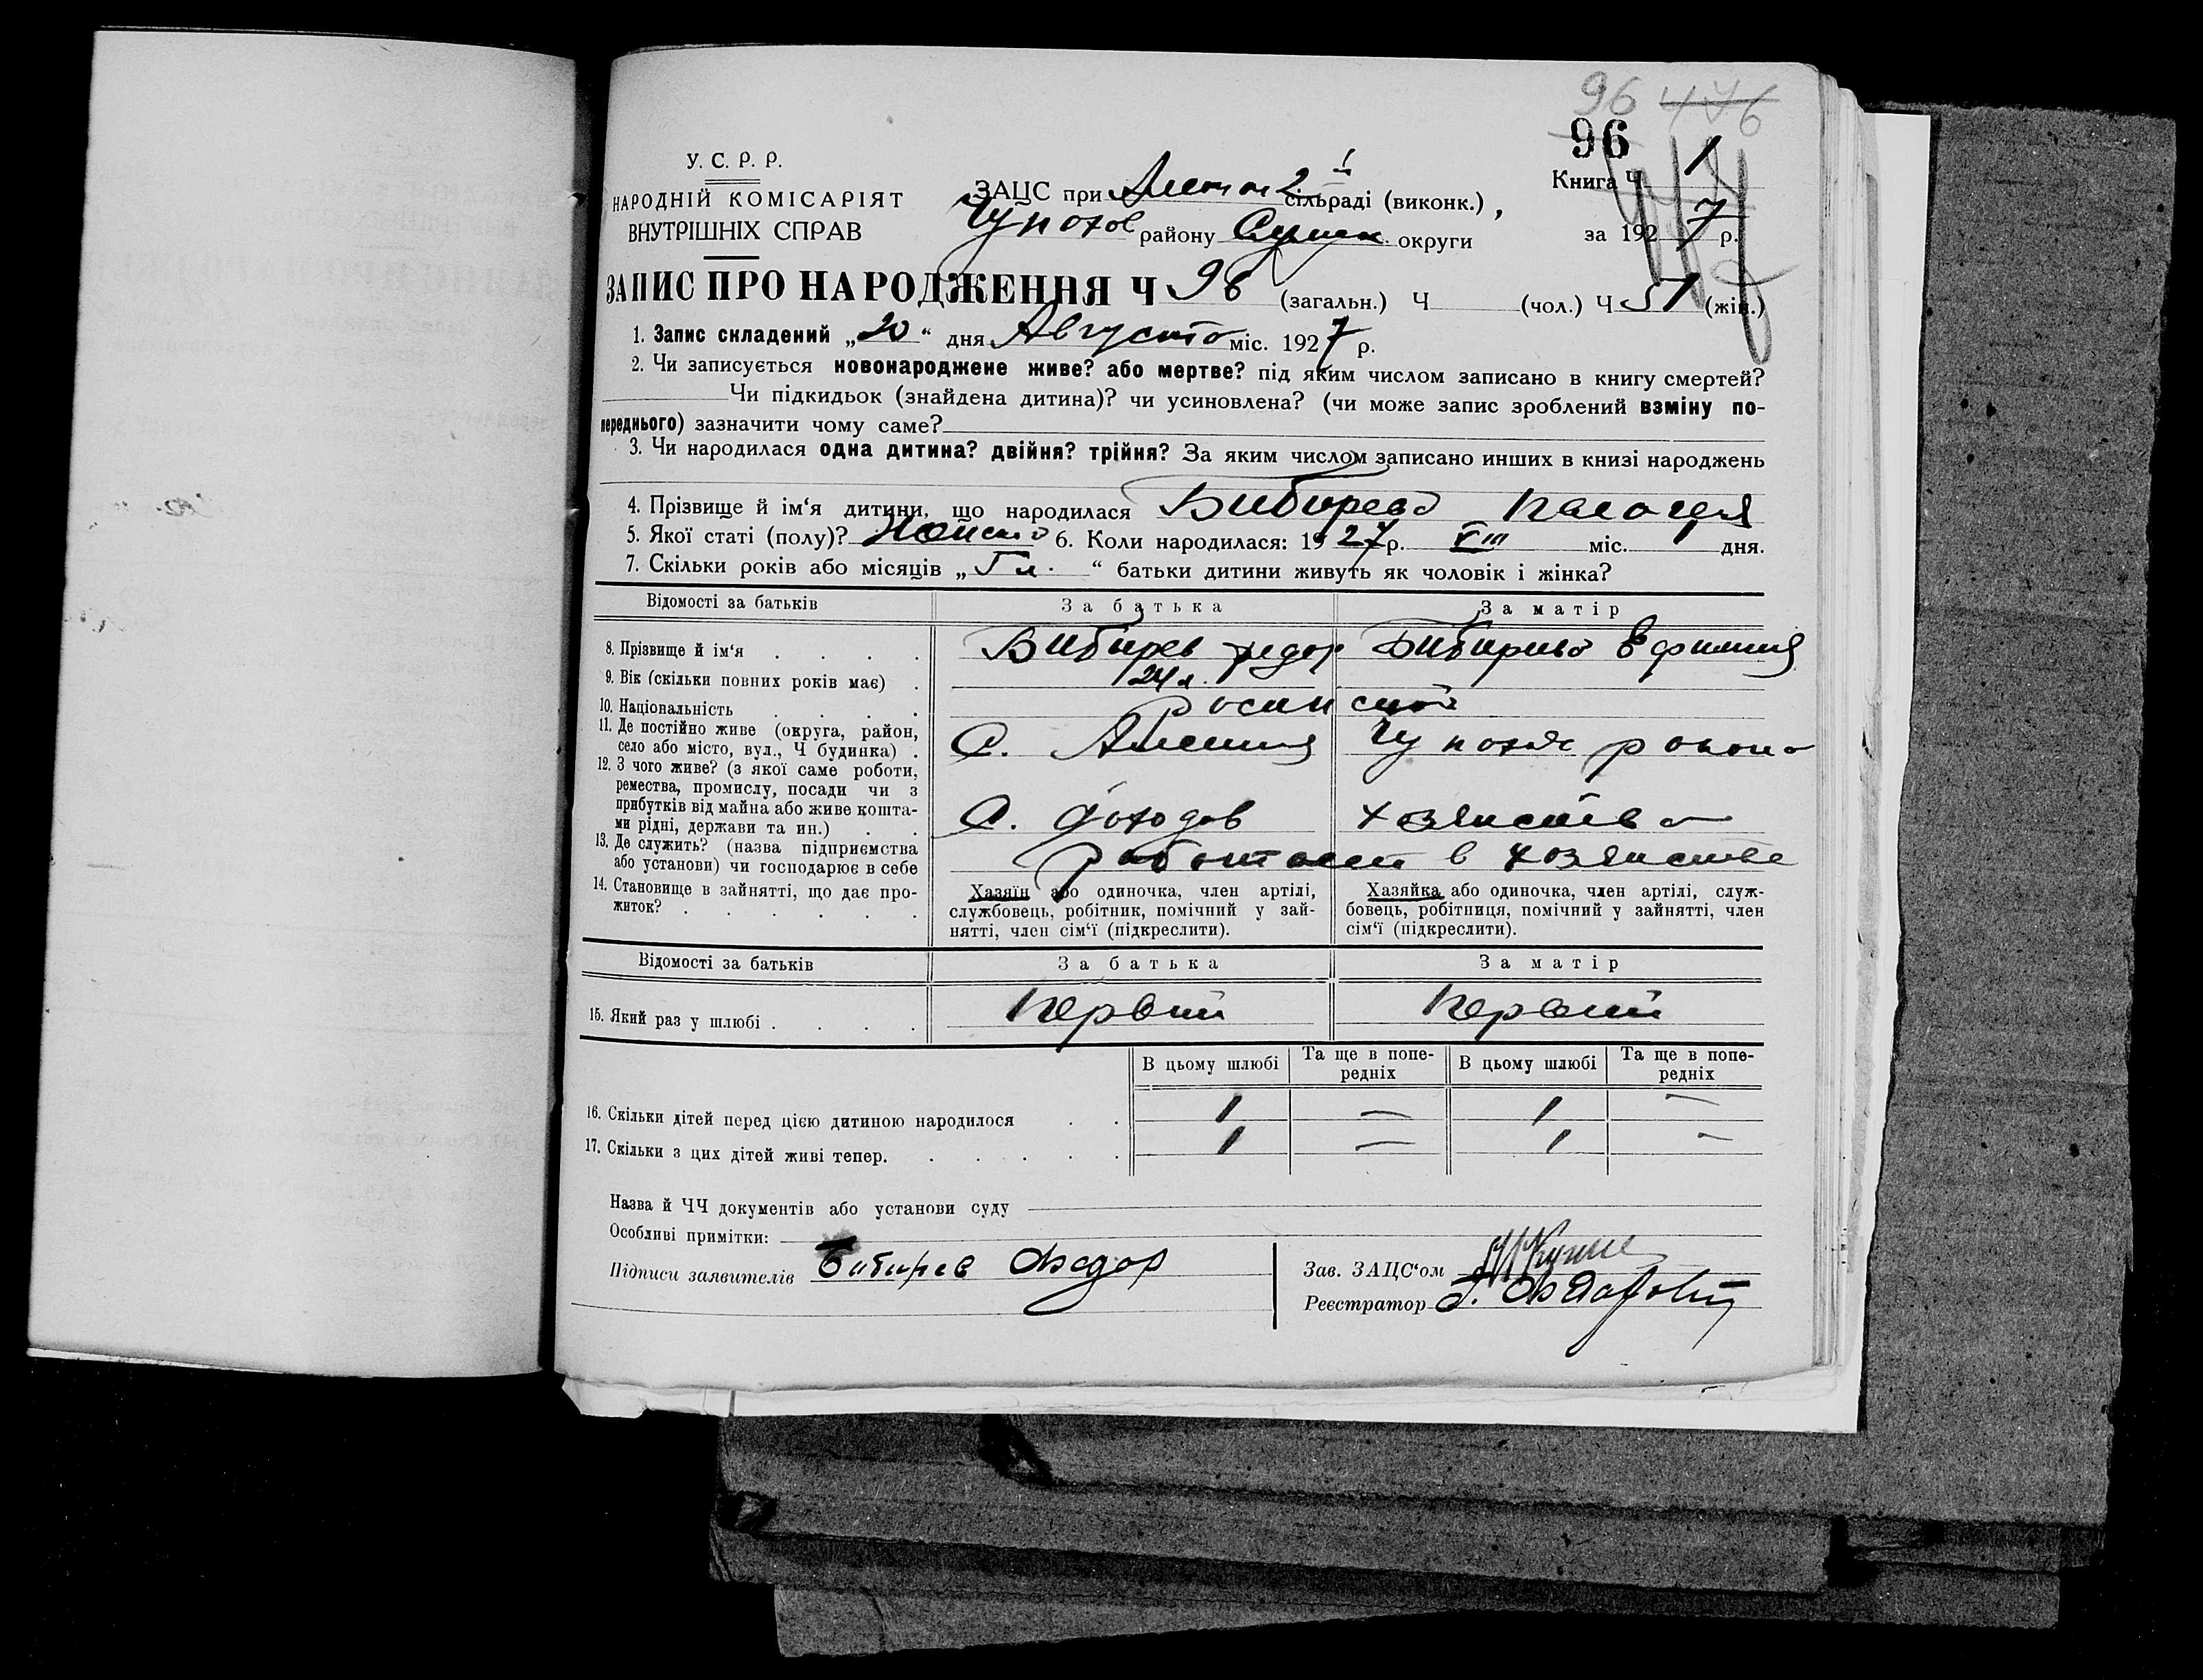 96 476
96
У. С. Р. Р.
НАРОДНІЙ КОМІСАРІЯТ
ВНУТРІШНІХ СПРАВ
ЗАЦС при сільраді (виконк.),
району Сумск. округи
Книга Ч 1
за 1927 р.
ЗАПИС ПРО НАРОДЖЕННЯ Ч 96 (загальн.) Ч (чол.) Ч 51 (жін.)
1. Запис складений „20“ дня Августа міс. 1927 р.
2. Чи записується новонароджене живе? або мертве? під яким числом записано в книгу смертей?
Чи підкидьок (знайдена дитина)? чи усиновлена? (чи може запис зроблений взміну по-
переднього) зазначити чому саме?
3. Чи народилася одна дитина? двійня? трійня? За яким числом записано инших в книзі народжень
4. Прізвище й ім‘я дитини, що народилася Бибирева
5. Якої статі (полу)? Женско 6. Коли народилася: 1927 р. VIII міс. 1 дня.
7. Скільки років або місяців „ “ батьки дитини живуть як чоловік і жінка?
Відомості за батьків За батька За матір
8. Прізвище й ім‘я Бибирев Федор Бибирива Ефимия
9. Вік (скільки повних років має) 24 л.
10. Національність
11. Де постійно живе (округа, район,
село або місто, вул., Ч будинка) С.
12. З чого живе? (з якої саме роботи,
ремества, промислу, посади чи з
прибутків від майна або живе кошта-
ми рідні, держави та ин.) С. доходов хозяиства
13. Де служить? (назва підприємства
або установи) чи господарює в себе работает в хозяистве
14. Становище в зайнятті, що дає про-
житок?
Хазяїн або одиночка, член артілі,
службовець, робітник, помічний у зай-
нятті, член сім‘ї (підкреслити).
Хазяйка або одиночка, член артілі, служ-
бовець, робітниця, помічний у зайнятті, член
сім‘ї (підкреслити).
Відомості за батьків За батька За матір
15. Який раз у шлюбі Первий Первий
В цьому шлюбі Та ще в попе-редніх В цьому шлюбі Та ще в попе-редніх
16. Скільки дітей перед цією дитиною народилося 1 — 1 —
17. Скільки з цих дітей живі тепер. 1 — 1 —
Назва й ЧЧ документів або установи суду
Особливі примітки:
Підписи заявителів Бибирев Федор
Зав. ЗАЦС‘ом
Реєстратор